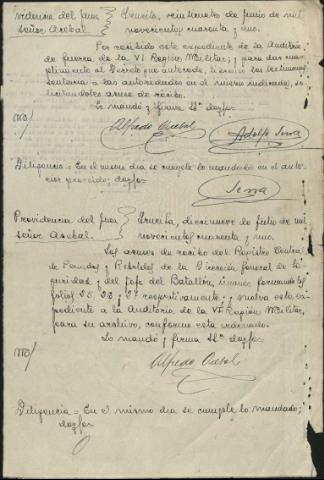 videncia del juez
señor Aresbal. } Irurita, veintinueve de junio de mil
novecientos cuarenta y uno.
Por recibido este expediente de la Auditoria
de Guerra de la VI Región Militar; y para dar cum-
plimiento al decreto que antecede, líbrense los testimonios
a las autoridades en el mismo indicadas, so-
licitandoles acuse de recibo.
Lo mandó y firma Sª doyfé
Alfredo Adolfo Serra
Diligencia = En el mismo dia se cumple lo mandado en el ante-
rior proveido; doyfé
Serra
Providencia del juez
señor Aresbal. } Irurita, diecinueve de julio de mil
novecientos cuarenta y uno.
Los acuses de recibo del Registro Central
de Penados y Rebeldes, de la Dirección General de Se-
guridad, y del Jefe del Batallón, únanse formando los
folios 25, 26, y 27 respectivamente; y vuelva este ex-
pediente a la Auditoria de la VI Región Militar,
para su archivo, conforme está ordenado.
Lo mandó y firma Sª doyfé
Alfredo
Diligencia = En el mismo dia se cumple lo mandado;
doyfé